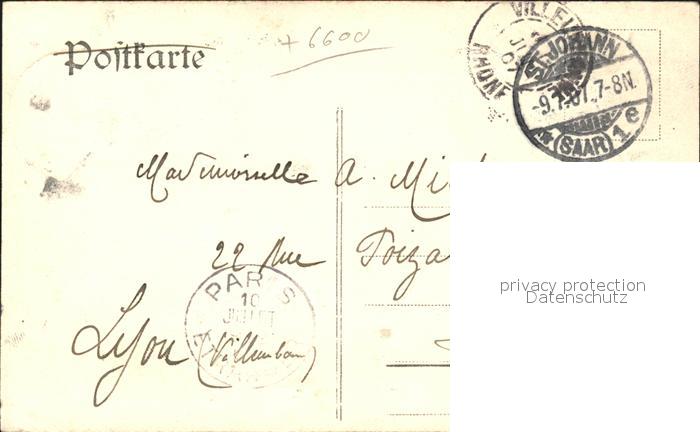 Postkarte
+ 6600
VILLE
RHONE
ST. JOHANN
-9.7.07. 7-8N.
* (SAAR) 1e
Mademoiselle A. Mi
22 Rue Foiza
PARIS
10
JUILLET
Lyon (Villeurbane)
privacy protection
Datenschutz